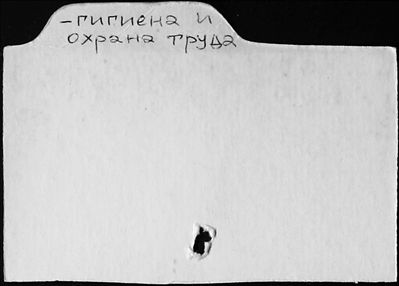 -гигиена и
охрана труда